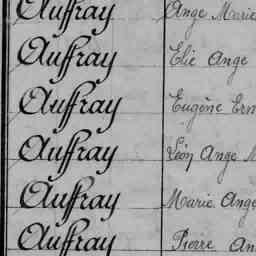 Auffray Ange Marie
Auffray Elie Ange
Auffray Eugène Ern
Auffray Léon Ange M
Auffray Marie Ange
Auffray Pierre An